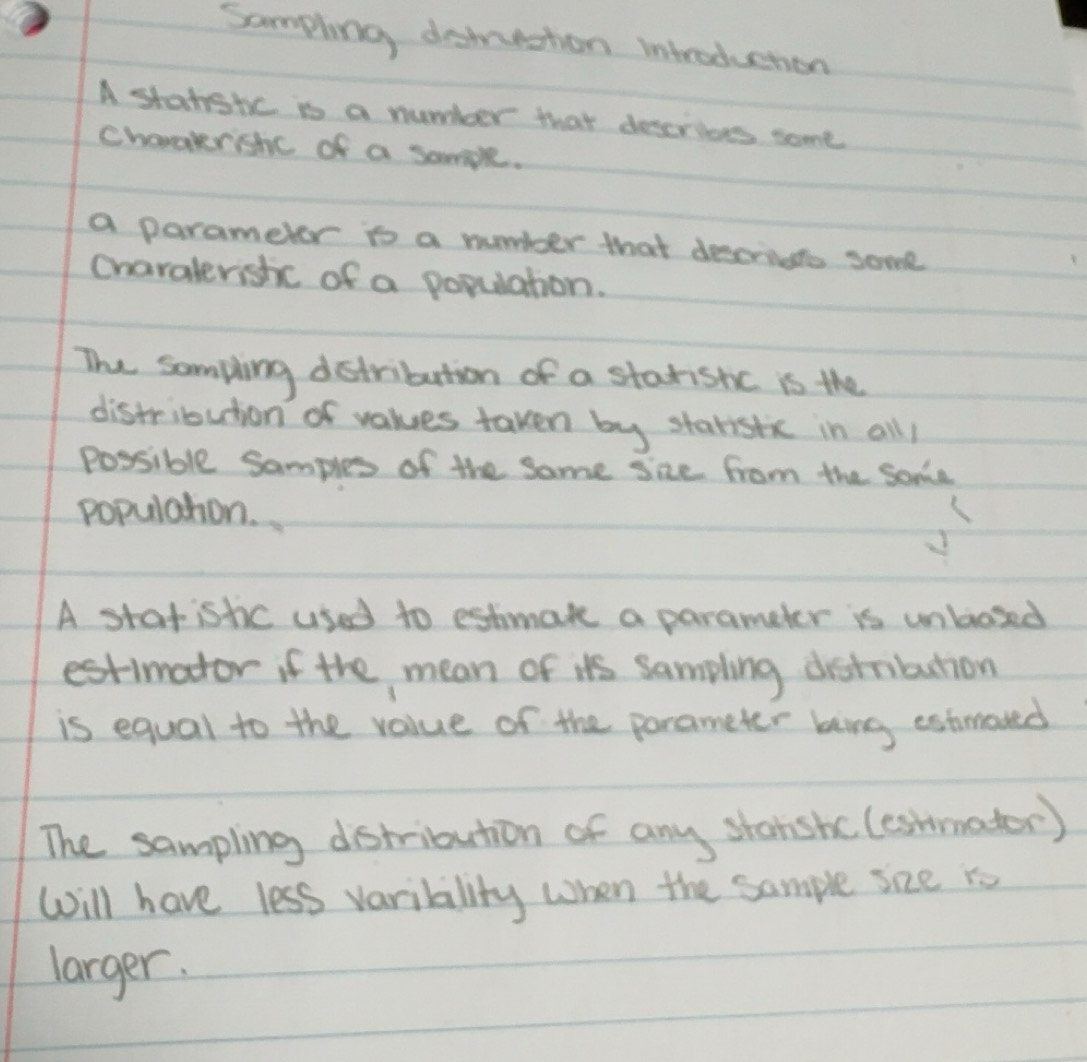 Sampling distribution introduction
A statistic is a number that describes some
Charateristic of a sample.
a parameter is a number that describes some
Charateristic of a population.
The sampling distribution of a statistic is the
distribution of values taken by statistic in all
possible samples of the same size from the same
population.
A statistic used to estimate a parameter is unbiased
estimator if the mean of its sampling distribution
is equal to the value of the parameter being estimated
The sampling distribution of any statistic (estimator)
will have less varibility when the sample size is
larger.